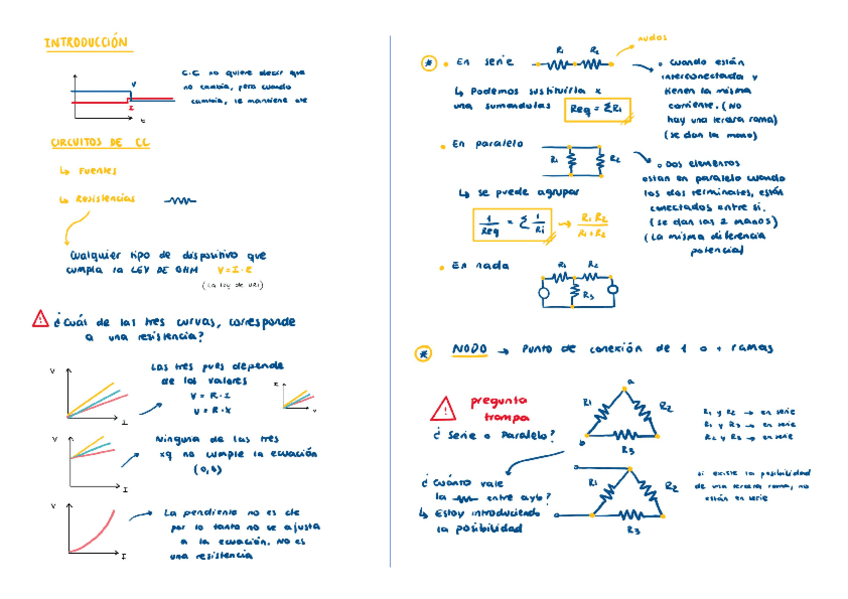 INTRODUCCIÓN
C.C no quiere decir que
no cambia, pero cuando
cambia, se mantiene cte
V
I
t
CIRCUITOS DE CC
↳ Fuentes
↳ Resistencias
Cualquier tipo de dispositivo que
cumpla la LEY DE OHM V=I·R
¿Cuál de las tres curvas, corresponde
a una resistencia?
V
I
Las tres pues depende
de los valores
V = R·I
Ninguna de las tres
xq no cumple la ecuación
(0,0)
V
I
La pendiente no es cte
por lo tanto no se ajusta
a la ecuación. NO es
una resistencia
V
I
* • En serie
R1 R2
nudos
↳ Podemos sustituirla x
una sumandolas Req = ΣRi
• Cuando están
interconectada y
tienen la misma
corriente. (NO
hay una tercera rama)
(se dan la mano)
• En paralelo
R1 R2
↳ se puede agrupar
1/Req = Σ 1/Ri → R1 R2/R1+R2
• Dos elementos
estan en paralelo cuando
los dos terminales, están
conectados entre si.
(se dan las 2 manos)
(La misma diferencia
potencial)
• En nada
R1 R2
R3
* NODO → Punto de conexión de 1 o + ramas
pregunta
trampa
¿ Serie o Paralelo?
a
R1 R2
b
R3
R1 y R2 → en serie
R1 y R3 → en serie
R2 y R3 → en serie
¿ Cuánto vale
la entre a y b?
↳ Estoy introduciendo
la posibilidad
R1 R2
R3
si existe la posibilidad
de una tercera rama, no
están en serie